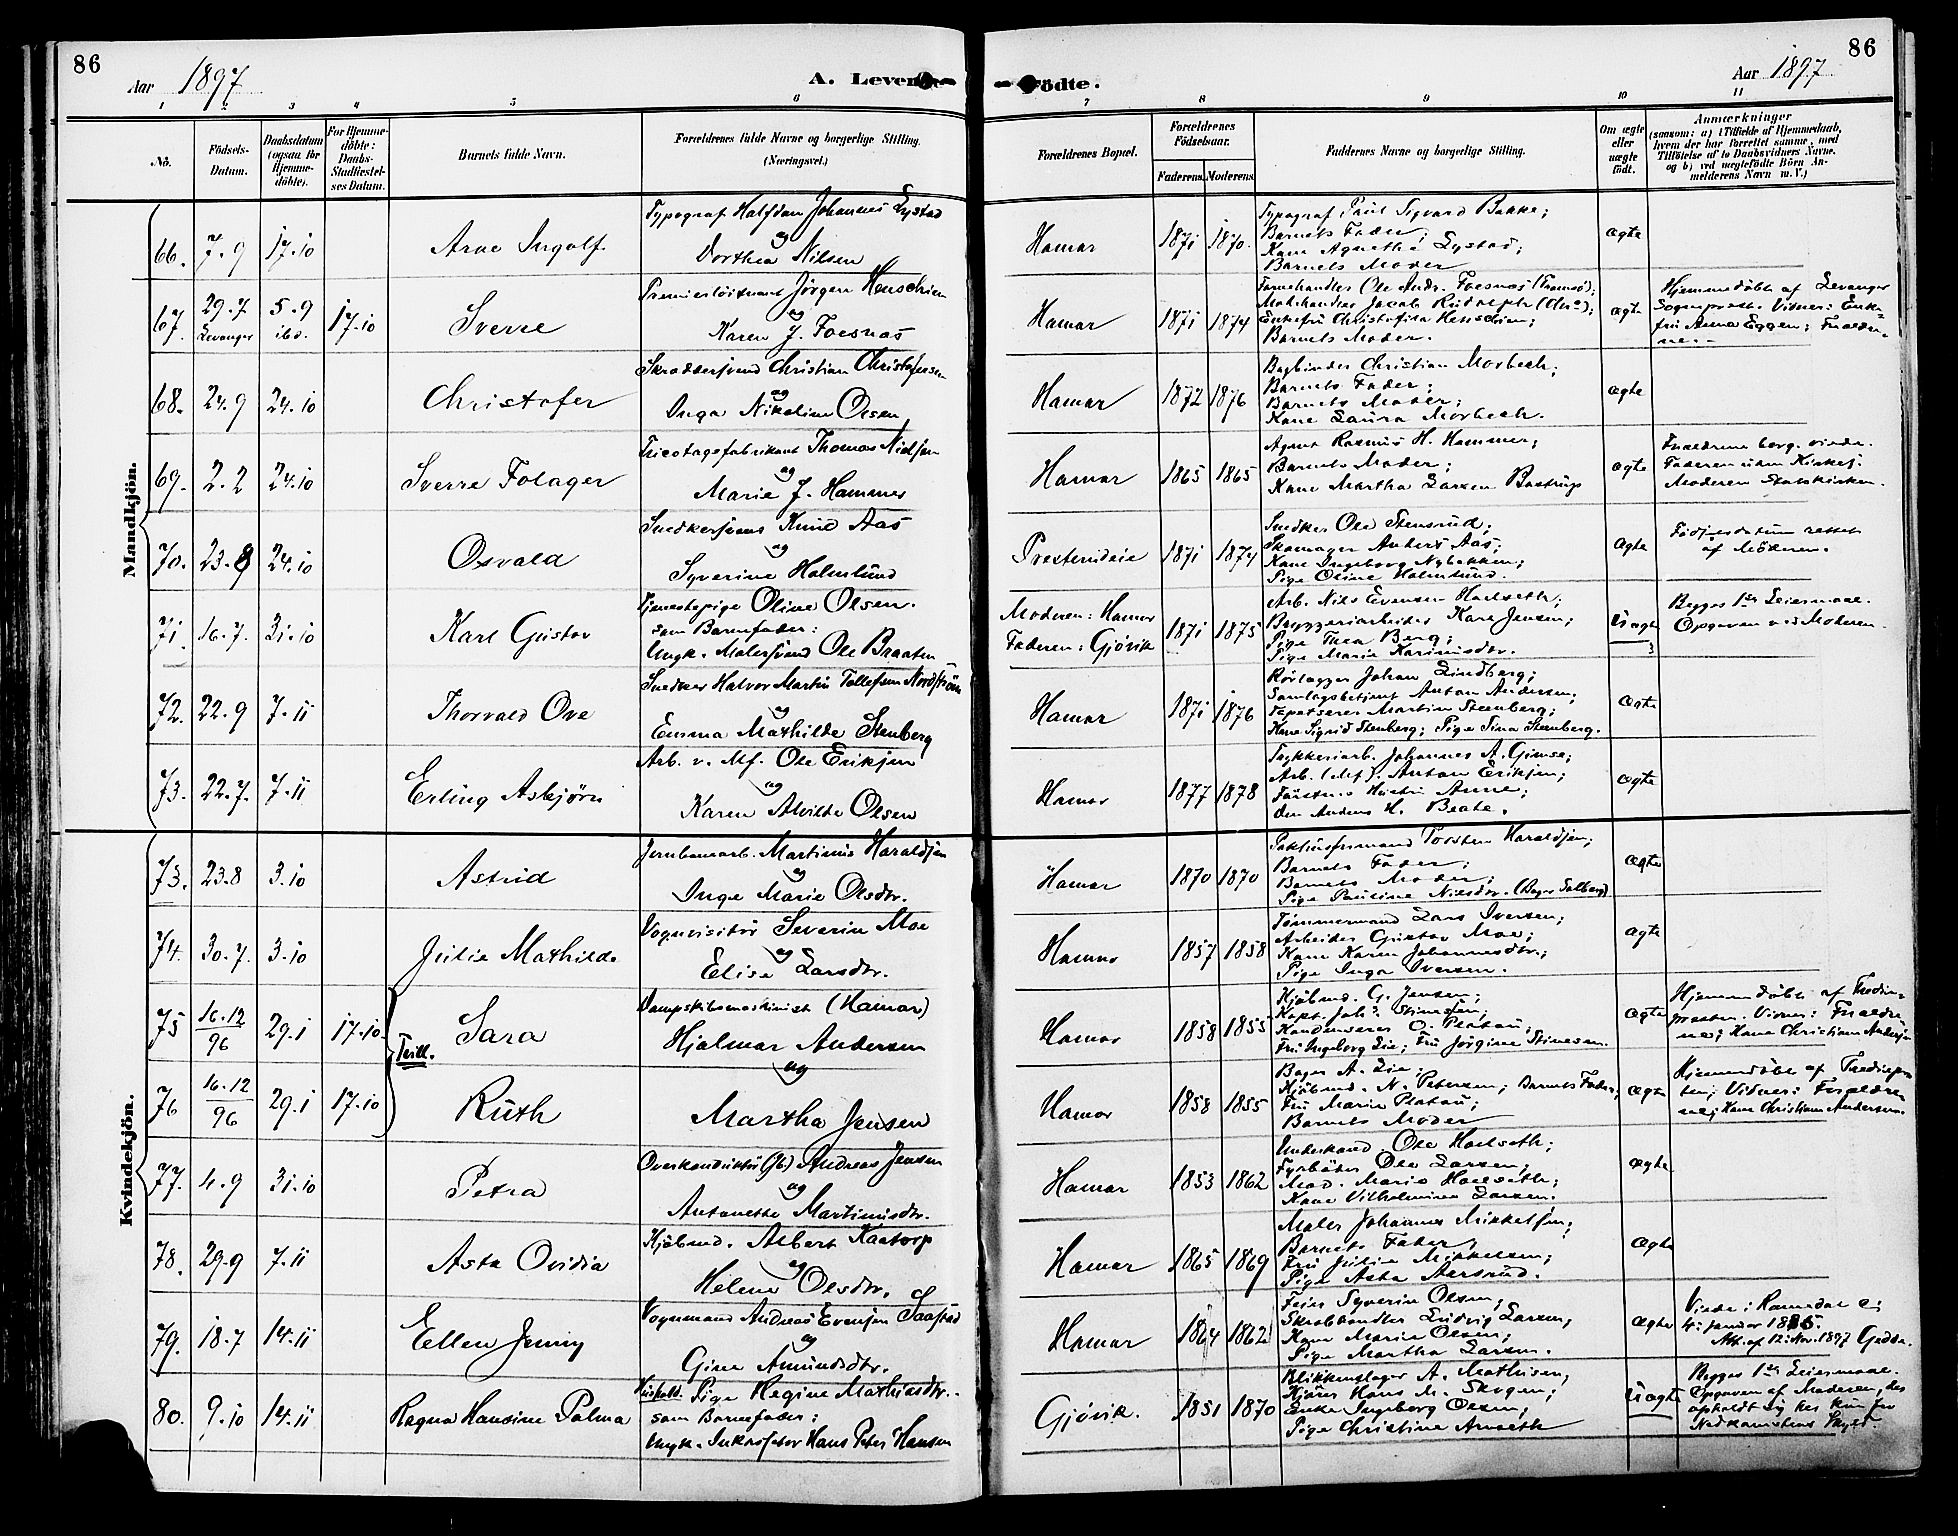 86
Aar 1897
A. Levende
Födte.
Aar 1897
86
1 2 3 4 5 6 7 8 9 10 11
No.
Födsels-Datum.
Daabsdatum (ogsaa for Hjemmedöbte).
For Hjemmedöbte: Daabs-Stadfæstelses Datum.
Barnets fulde Navn.
Forældrenes fulde Navne og borgerlige Stilling. (Næringsvei.)
Forældrenes Bopæl.
Forældrenes Födselsaar.
Faderens. Moderens.
Faddernes Navne og borgerlige Stilling.
Om ægte eller uægte födt.
Anmærkninger
(saasom: a) i Tilfælde af Hjemmedaab, hvem der har forrettet samme, med Tilföielse af to Daabsvidners Navne. og b) ved uægtefödte Börn Anmelderens Navn m. V.)
Mandkjön.
66. 7.9 17.10 Arne Ingolf.
Typograf Halfdan Johannes Lystad
og
Dorthea Nilsen
Hamar 1871 1870.
Typograf Paul Sigvard Bakke;
Barnets Fader;
Kone Agnethe Lystad;
Barnets Moder
ægte
67. 29.7 Levanger 5.9 ibd. 17.10 Sverre
Premierløitnant Jørgen Henschien
og
Karen J. Foesnas
Hamar 1871 1874
Farvehandler Ole Andr. Foesnas (Tromsø);
Malehandler Jacob Rudolph (Chra);
Enkefru Christofila Henschien;
Barnets Moder.
ægte
Hjemmedøbt af Levanger
Sognepræst. Vidner: Enke-
fru Anna Eggen; Foældre-
ne.-
68. 24.9 24.10 Christofer
Skræddersvend Christian Christofersen
og
Inga Nikoline Olsen
Hamar 1872 1876
Bogbinder Christian Morbech;
Barnets Fader;
Barnets Moder;
Kone Laura Morbech.
ægte
69. 2.2 24.10 Sverre Folager
Tricotagefabrikant Thomas Nielsen
og
Marie J. Hammer
Hamar 1865 1865
Agent Rasmus H. Hammer;
Barnets Moder;
Kone Martha Larsen Bastrup
ægte
Foældrene borg. viede.
Faderen uden Kirkes.
Moderen Statskirken.
70. 23.8 24.10 Osvald
Snedkersvend Knud Aas
og
Syverine Holmlund
Presterudeie 1871 1874
Snedker Ole Stensrud;
Skomager Anders Aas;
Kone Ingeborg Nybakken;
Pige Oline Holmlund.
ægte
Fødselsdatum rettet
af Moderen.
71. 16.7. 31.10 Karl Gustav
Tjenestepige Oline Olsen.
som Barnefader:
Ungk. Malersvend Ole Braaten
Moderen: Hamar
Faderen: Gjøvik
1871 1875
Arb. Nils Evensen Hoelseth;
Bryggeriarbeider Kare Jensen;
Pige Thea Berg;
Pige Marie Karinusdtr.
Uægte
Begges 1ste Leiermaal.
Opgaven ved Moderen.
72. 22.9 7.11 Thorvald Ove
Snedker Halvor Martin Tollefsen Nordstrøm
og
Emma Mathilde Stenberg
Hamar 1871 1876
Rørlægger Johan Lindberg;
Samlagsbetjent Anton Andersen;
Tapetserer Martin Stenberg;
Kone Sigrid Stenberg; Pige Tina Stenberg.
ægte
73. 22.7. 7.11 Erling Asbjørn
Arb. v. Mf. Ole Eriksen
og
Karen Alvilde Olsen
Hamar 1877 1878
Trykkeriarb. Johannes A. Gimse;
Arb. (Mf). Anton Eriksen;
Førstnes Hustru Anne;
den Andens H. Beate.
ægte
Kvindekjön.
73. 23.8 3.10 Astrid
Jernbanearb. Martinus Haraldsen
og
Inge Marie Olsdtr.
Hamar 1870 1870
Pakhusformand Torsten Haraldsen;
Barnets Fader;
Barnets Moder;
Pige Pauline Nilsdtr. (Bager Solberg)
ægte
74. 30.7. 3.10 Julie Mathilde
Vognvisitør Severin Moe
og
Elise Larsdtr.
Hamar 1857 1858
Tømmermand Lars Iversen;
Arbeider Gustav Moe;
Kone Karen Johannesdtr.;
Pige Inga Iversen.
ægte
75 16.12 96 29.1 17.10 Tvill. Sara
Dampskibsmaskinist (Hamar)
Hjalmar Andersen
og
Martha Jensen
Hamar 1858 1855
Kjøbmd. G. Jensen;
Kapt. Joh. Stinesen;
Kondukterer O. Platou;
Fru Ingeborg Lie; Fru Jørgine Stinesen.
ægte
Hjemmedøbt af Fredin-
presten. Vidner: Forældre-
ne; Kone Christiane Andersen
76 16.12 96 29.1 17.10 Ruth
Hamar 1858 1855
Bager A. Lie;
Kjøbmd. N. Petersen; Barnets Fader;
Fru Marie Platou;
Barnets Moder
ægte
Hjemmedøbt af
Vidner: Forældre-
ne; Kone Christiane Andersen.
77. 4.9 31.10 Petra
Overkonduktør (Jb.) Andreas Jensen
og
Antonette Martinusdtr.
Hamar 1853 1862
Ole Hoelseth;
Fyrbøter Ole Larsen;
Mad. Marie Hoelseth;
Kone Vilhelmine Larsen.
ægte
78. 29.9 7.11 Asta Ovidia
Kjøbmd. Albert Kaatorp
og
Helene Olsdtr.
Hamar 1865 1869
Maler Johannes Mikkelsen;
Barnets Fader;
Fru Julie Mikkelsen;
Pige Asta Aarsrud.
ægte
79. 18.7 14.11 Ellen Jenny
Vognmand Andreas Evensen Saastad
og
Gine Amundsdtr.
Hamar 1864 1862
Feier Syverin Olsen;
Skrabhandler Ludvig Larsen;
Kone Marie Olsen;
Pige Martha Larsen.
ægte
Viede i Romedal
4. Januar 1885.
Att. af 12. Nov. 1897
80. 9.10 14.11 Ragna Hansine Palma
Hushold. Pige Regine Mathiasdtr.
som Barnefader:
Ungk. Inkassator Hans Peter Hansen
Gjøvik. 1851 1870
Blikkenslager A. Mathisen;
Kjører Hans M. Skogen;
Enke Ingeborg Olsen;
Pige Christine Arneseth
Uægte
Begges 1ste Leiermaal.
Opgaven af Moderen, der
opholdt sig her kun for
Nedkomstens Skyld.